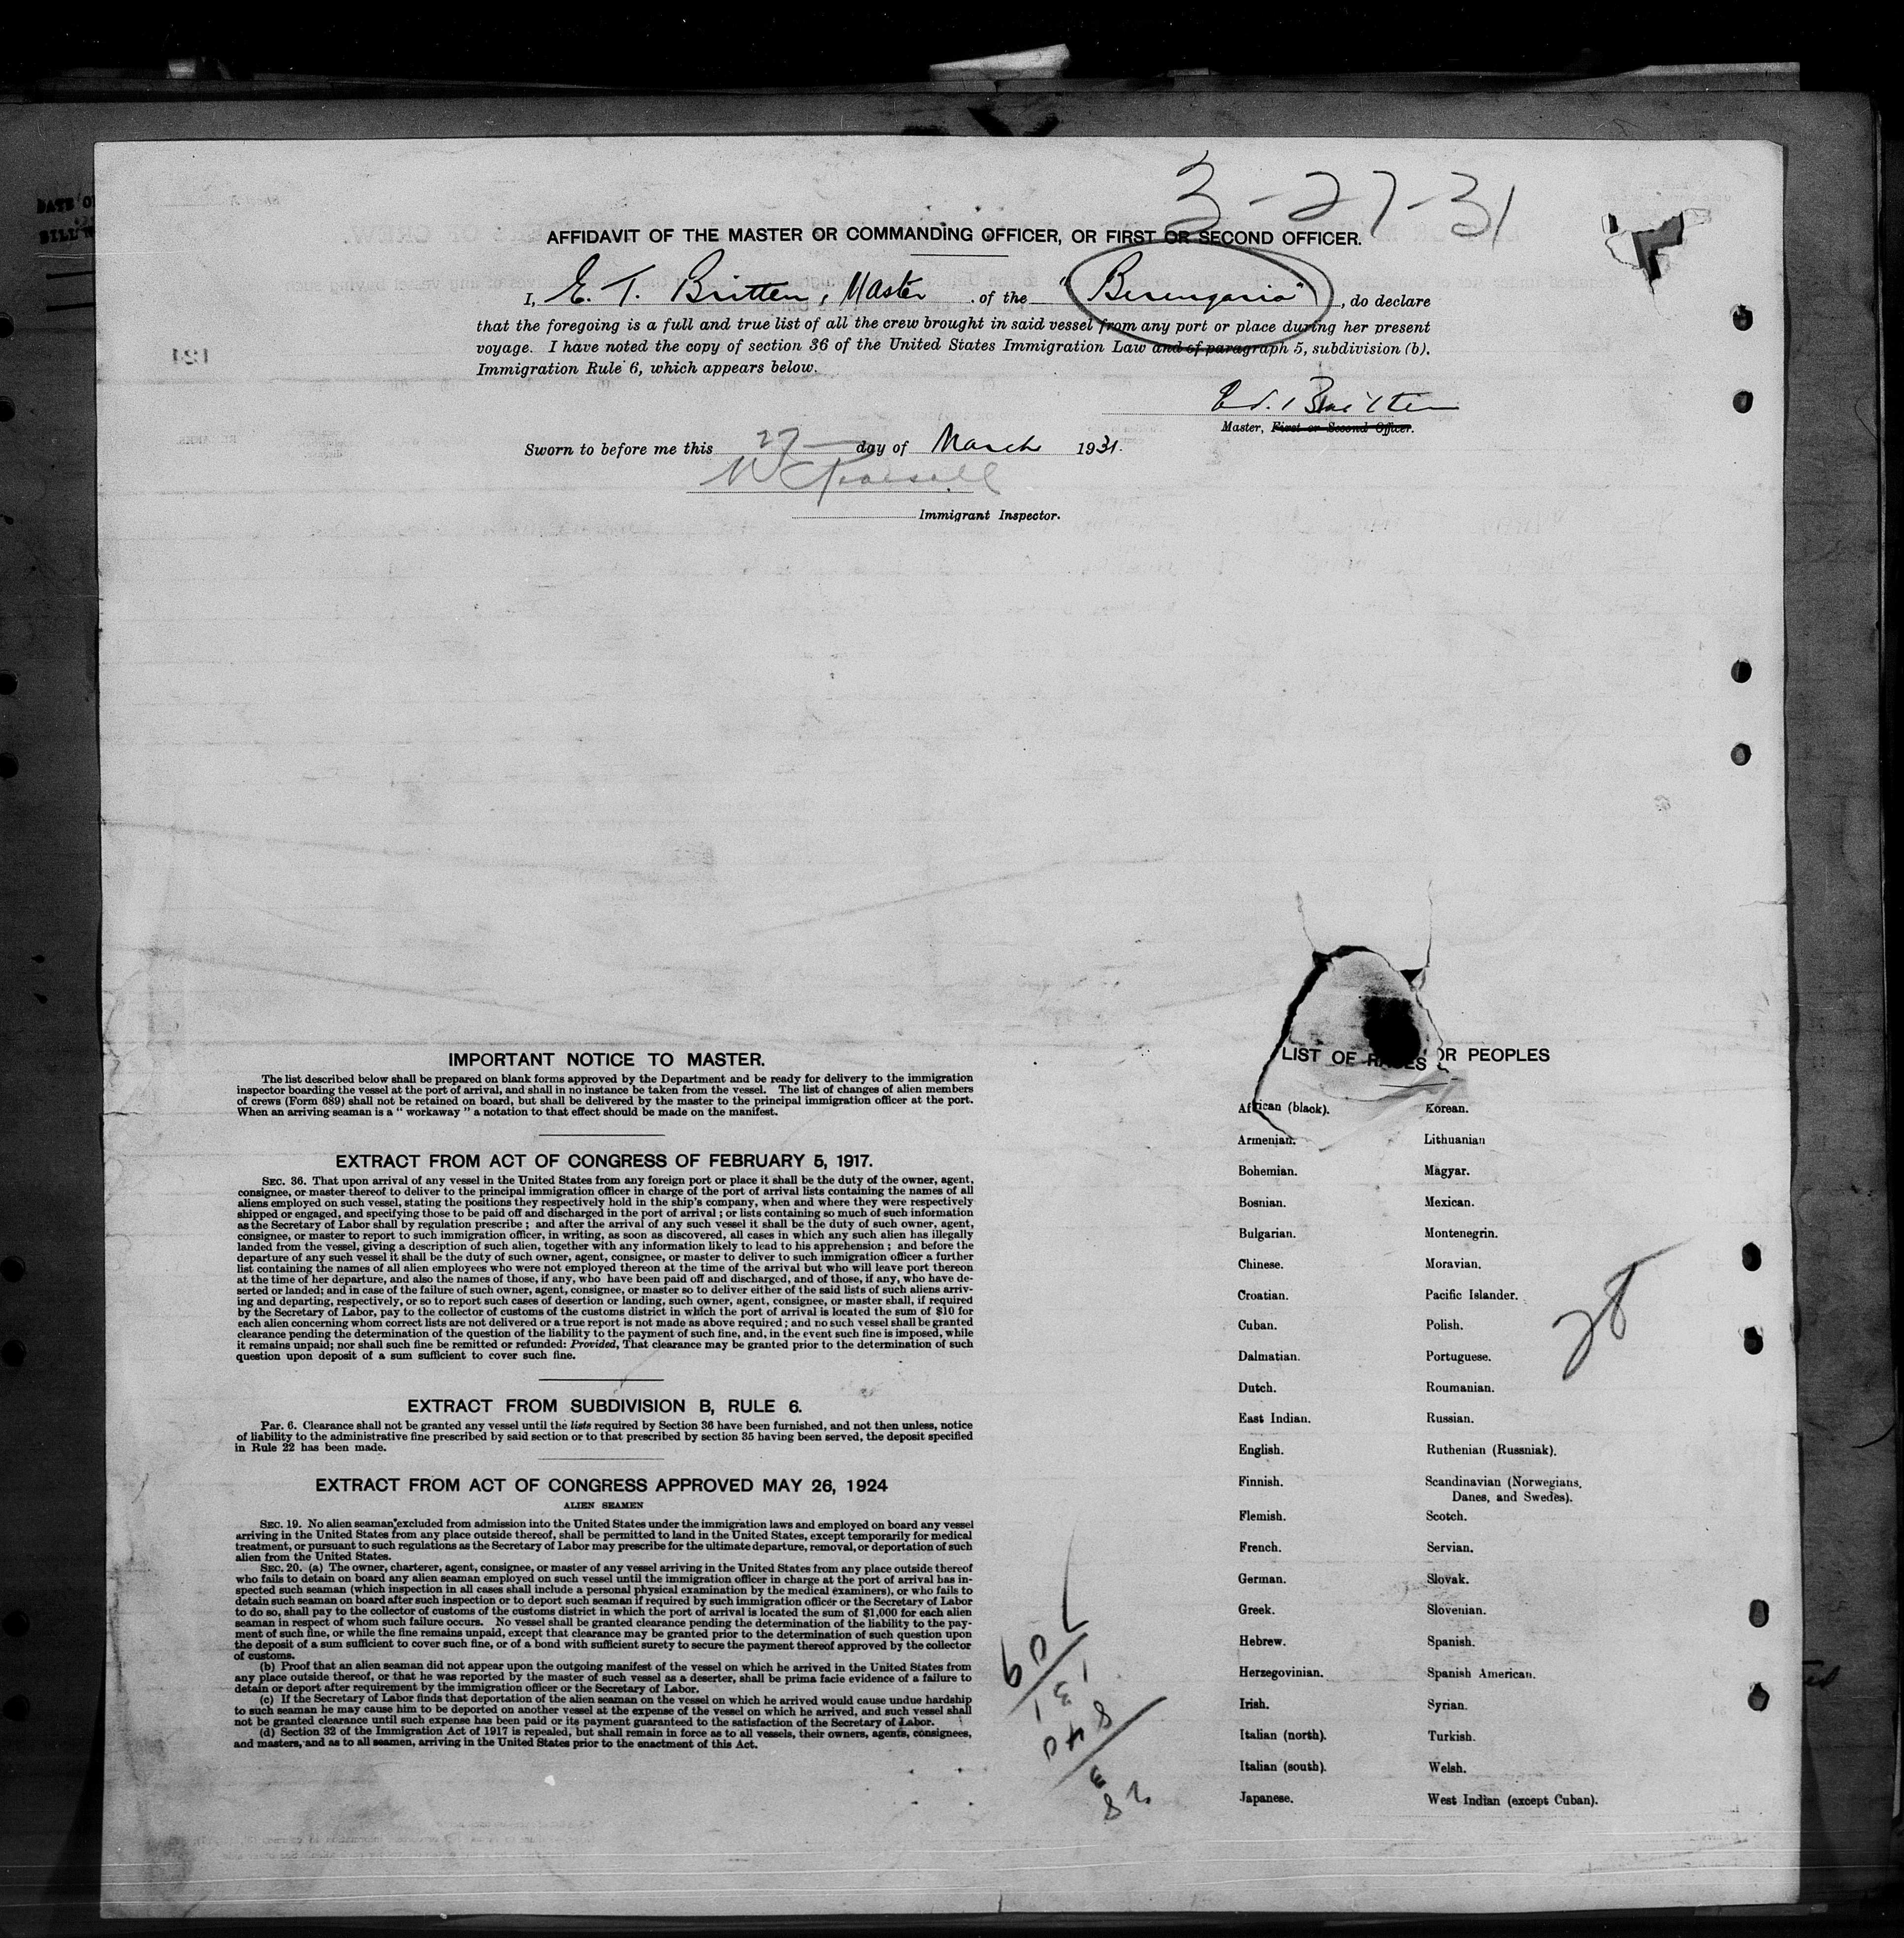 3-27-31
AFFIDAVIT OF THE MASTER OR COMMANDING OFFICER, OR FIRST OR SECOND OFFICER.
I, E. T. Britten, Master of the "Berengaria", do declare
that the foregoing is a full and true list of all the crew brought in said vessel from any port or place during her present
voyage. I have noted the copy of section 36 of the United States Immigration Law and of paragraph 5, subdivision (b).
Immigration Rule 6, which appears below.
E. T. Britten
Master, First or Second Officer.
Sworn to before me this 27 day of March 1931.
Immigrant Inspector.
121
DATE OF
BILL
IMPORTANT NOTICE TO MASTER.
The list described below shall be prepared on blank forms approved by the Department and be ready for delivery to the immigration
inspector boarding the vessel at the port of arrival, and shall in no instance be taken from the vessel. The list of changes of alien members
of crews (Form 689) shall not be retained on board, but shall be delivered by the master to the principal immigration officer at the port.
When an arriving seaman is a " workaway " a notation to that effect should be made on the manifest.
EXTRACT FROM ACT OF CONGRESS OF FEBRUARY 5, 1917.
SEC. 36. That upon arrival of any vessel in the United States from any foreign port or place it shall be the duty of the owner, agent,
consignee, or master thereof to deliver to the principal immigration officer in charge of the port of arrival lists containing the names of all
aliens employed on such vessel, stating the positions they respectively hold in the ship's company, when and where they were respectively
shipped or engaged, and specifying those to be paid off and discharged in the port of arrival ; or lists containing so much of such information
as the Secretary of Labor shall by regulation prescribe ; and after the arrival of any such vessel it shall be the duty of such owner, agent,
consignee, or master to report to such immigration officer, in writing, as soon as discovered, all cases in which any such alien has illegally
landed from the vessel, giving a description of such alien, together with any information likely to lead to his apprehension ; and before the
departure of any such vessel it shall be the duty of such owner, agent, consignee, or master to deliver to such immigration officer a further
list containing the names of all alien employees who were not employed thereon at the time of the arrival but who will leave port thereon
at the time of her departure, and also the names of those, if any, who have been paid off and discharged, and of those, if any, who have de-
serted or landed; and in case of the failure of such owner, agent, consignee, or master so to deliver either of the said lists of such aliens arriv-
ing and departing, respectively, or so to report such cases of desertion or landing, such owner, agent, consignee, or master shall, if required
by the Secretary of Labor, pay to the collector of customs of the customs district in which the port of arrival is located the sum of $10 for
each alien concerning whom correct lists are not delivered or a true report is not made as above required ; and no such vessel shall be granted
clearance pending the determination of the question of the liability to the payment of such fine, and, in the event such fine is imposed, while
it remains unpaid; nor shall such fine be remitted or refunded: Provided, That clearance may be granted prior to the determination of such
question upon deposit of a sum sufficient to cover such fine.
EXTRACT FROM SUBDIVISION B, RULE 6.
Par. 6. Clearance shall not be granted any vessel until the lists required by Section 36 have been furnished, and not then unless, notice
of liability to the administrative fine prescribed by said section or to that prescribed by section 35 having been served, the deposit specified
in Rule 22 has been made.
EXTRACT FROM ACT OF CONGRESS APPROVED MAY 26, 1924
ALIEN SEAMEN
SEC. 19. No alien seaman excluded from admission into the United States under the immigration laws and employed on board any vessel
arriving in the United States from any place outside thereof, shall be permitted to land in the United States, except temporarily for medical
treatment, or pursuant to such regulations as the Secretary of Labor may prescribe for the ultimate departure, removal, or deportation of such
alien from the United States.
SEC. 20. (a) The owner, charterer, agent, consignee, or master of any vessel arriving in the United States from any place outside thereof
who fails to detain on board any alien seaman employed on such vessel until the immigration officer in charge at the port of arrival has in-
spected such seaman (which inspection in all cases shall include a personal physical examination by the medical examiners), or who fails to
detain such seaman on board after such inspection or to deport such seaman if required by such immigration officer or the Secretary of Labor
to do so, shall pay to the collector of customs of the customs district in which the port of arrival is located the sum of $1,000 for each alien
seaman in respect of whom such failure occurs. No vessel shall be granted clearance pending the determination of the liability to the pay-
ment of such fine, or while the fine remains unpaid, except that clearance may be granted prior to the determination of such question upon
the deposit of a sum sufficient to cover such fine, or of a bond with sufficient surety to secure the payment thereof approved by the collector
of customs.
(b) Proof that an alien seaman did not appear upon the outgoing manifest of the vessel on which he arrived in the United States from
any place outside thereof, or that he was reported by the master of such vessel as a deserter, shall be prima facie evidence of a failure to
detain or deport after requirement by the immigration officer or the Secretary of Labor.
(c) If the Secretary of Labor finds that deportation of the alien seaman on the vessel on which he arrived would cause undue hardship
to such seaman he may cause him to be deported on another vessel at the expense of the vessel on which he arrived, and such vessel shall
not be granted clearance until such expense has been paid or its payment guaranteed to the satisfaction of the Secretary of Labor.
(d) Section 32 of the Immigration Act of 1917 is repealed, but shall remain in force as to all vessels, their owners, agents, consignees,
and masters, and as to all seamen, arriving in the United States prior to the enactment of this Act.
LIST OF RACES OR PEOPLES
African (black).
Armenian.
Bohemian.
Bosnian.
Bulgarian.
Chinese.
Croatian.
Cuban.
Dalmatian.
Dutch.
East Indian.
English.
Finnish.
Flemish.
French.
German.
Greek.
Hebrew.
Herzegovinian.
Irish.
Italian (north).
Italian (south).
Japanese.
Korean.
Lithuanian
Magyar.
Mexican.
Montenegrin.
Moravian.
Pacific Islander.
Polish.
Portuguese.
Roumanian.
Russian.
Ruthenian (Russniak).
Scandinavian (Norwegians,
Danes, and Swedes).
Scotch.
Servian.
Slovak.
Slovenian.
Spanish.
Spanish American.
Syrian.
Turkish.
Welsh.
West Indian (except Cuban).
28